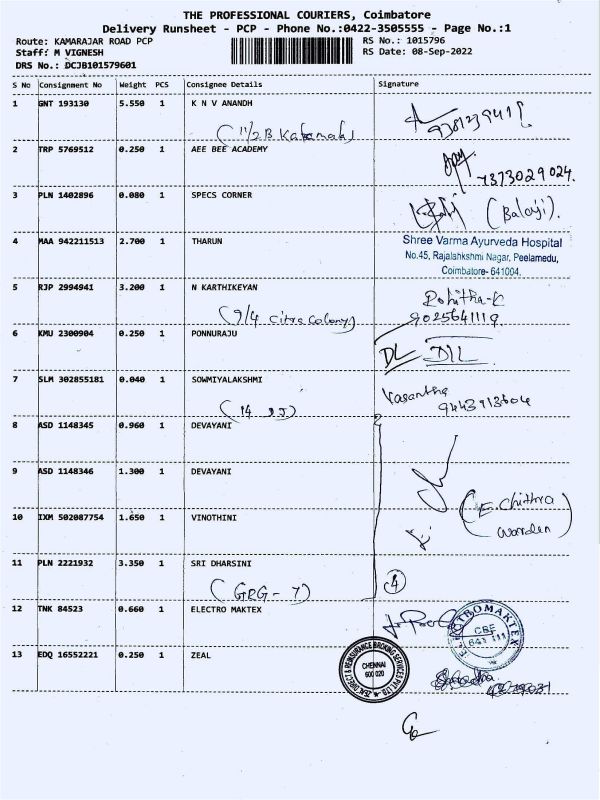 THE PROFESSIONAL COURIERS, Coimbatore
Delivery Runsheet - PCP - Phone No.:0422-3505555 - Page No.:1
Route: KAMARAJAR ROAD PCP
Staff: M VIGNESH
DRS No.: DCJB101579601
RS No.: 1015796
RS Date: 08-Sep-2022
S No Consignment No Weight PCS Consignee Details Signature
1 GNT 193130 5.550 1 K N V ANANDH
(11/2B
2 TRP 5769512 0.250 1 AEE BEE ACADEMY
7373029024.
3 PLN 1402896 0.080 1 SPECS CORNER
(Balaji).
4 MAA 942211513 2.700 1 THARUN
Shree Varma Ayurveda Hospital
No.45, Rajalahkshmi Nagar, Peelamedu,
Coimbatore- 641004.
5 RJP 2994941 3.200 1 N KARTHIKEYAN
Rohitha-K
(9/4 Citra Colony)
9025641119.
6 KMU 2300904 0.250 1 PONNURAJU
DL DIL
7 SLM 302855181 0.040 1 SOWMIYALAKSHMI
Vasantha
9443913604
(14 JJ)
8 ASD 1148345 0.960 1 DEVAYANI
9 ASD 1148346 1.300 1 DEVAYANI
(E. Chithra
warden)
10 IXM 502087754 1.650 1 VINOTHINI
11 PLN 2221932 3.350 1 SRI DHARSINI
(GRG - 7)
4
12 TNK 84523 0.660 1 ELECTRO MAKTEX
ELECTROMAKTEX
CBE
641 111
13 EDQ 16552221 0.250 1 ZEAL
ZEAL DIRECT & REINSURANCE BROKING SERVICES PVT. LTD.
CHENNAI
600 020